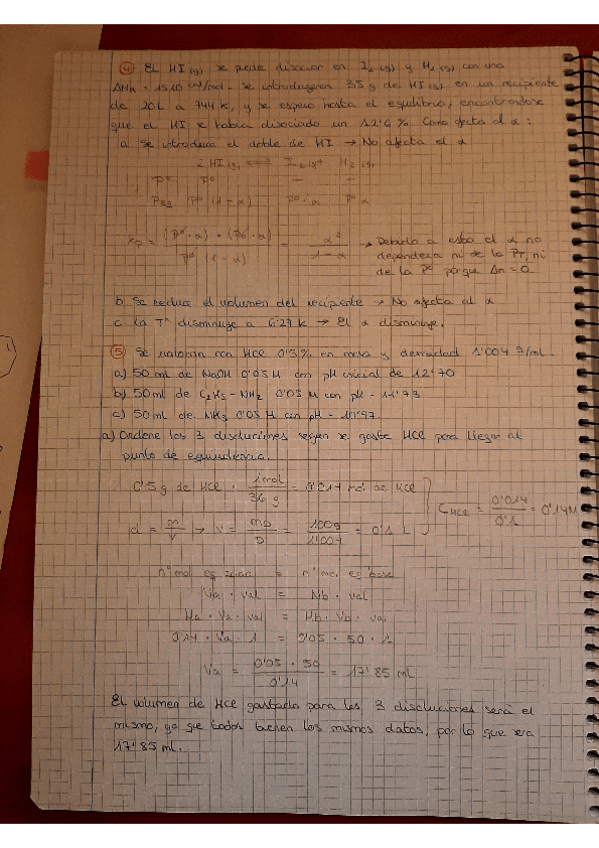 ④ El HI (g) se puede disociar en I₂ (g) y H₂ (g) con una
se introdujeron 35 g de HI (g) en un recipiente
de 20 L a 744 K, y se esperó hasta el equilibrio, encontrándose
que el HI se había disociado un 12'6 %. Como afecta al α :
a. Se introduzca el doble de HI → No afecta el α
2 HI (g) ⇌ I₂ (g) + H₂ (g)
Pº Pº — —
Peq Pº (1 - α) Pº · α Pº α
Kp = (Pº · α) · (Pº · α) / Pº (1 - α) = α² / 1 - α → Debido a esto el α no
dependerá ni de la PT, ni
de la Pº porque Δn = 0.
b. Se reduce el volumen del recipiente → No afecta al α
c. La Tª disminuye a 627 K → El α disminuye.
⑤ Se valoran con HCl 0'5 % en masa y densidad 1'004 g/ml.
a) 50 ml de NaOH 0'05 M con pH inicial de 12'70
b) 50 ml de C₂H₅ - NH₂ 0'05 M con pH = 11'73
c) 50 ml de NH₃ 0'05 M con pH = 10'97
a) Ordene las 3 disoluciones según se gaste HCl para llegar al
punto de equivalencia.
0'5 g de HCl · 1 mol / 36 g = 0'014 mol de HCl
d = m / V → V = m / D = 100g / 1'004 = 0'1 L
C HCl = 0'014 / 0'1 = 0'14 M
nº mol eq ácido = nº mol eq base
Na · val = Nb · val
Ma · Va · val = Mb · Vb · val
0'14 · Va · 1 = 0'05 · 50 · 1
Va = 0'05 · 50 / 0'14 = 17'85 ml
El volumen de HCl gastado para las 3 disoluciones será el
mismo, ya que todos tienen los mismos datos, por lo que será
17'85 ml.